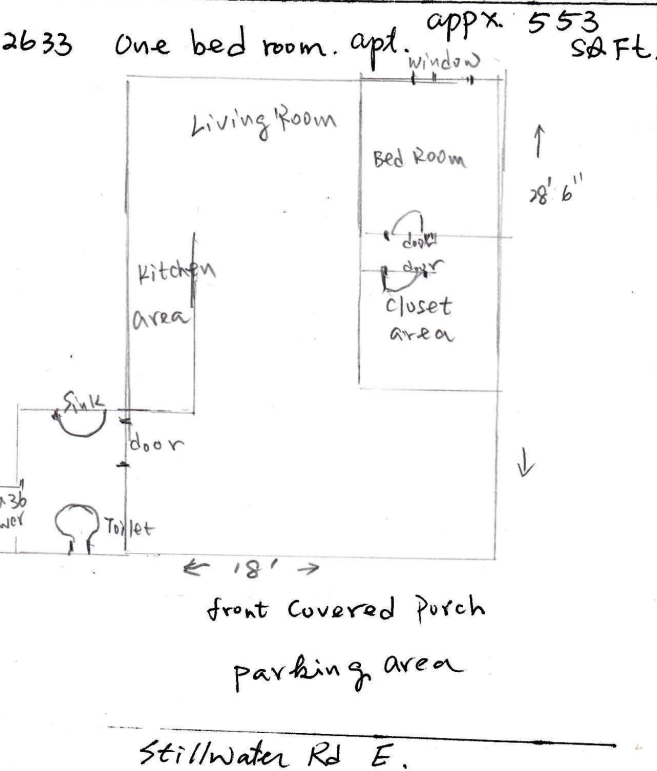 2633 One bed room. apt. appx. 553 SQ Ft.
window
Living Room
Bed Room
28' 6"
door
door
Kitchen
area
Closet
area
Sink
door
Toilet
18'
front Covered Porch
parking area
Stillwater Rd E.